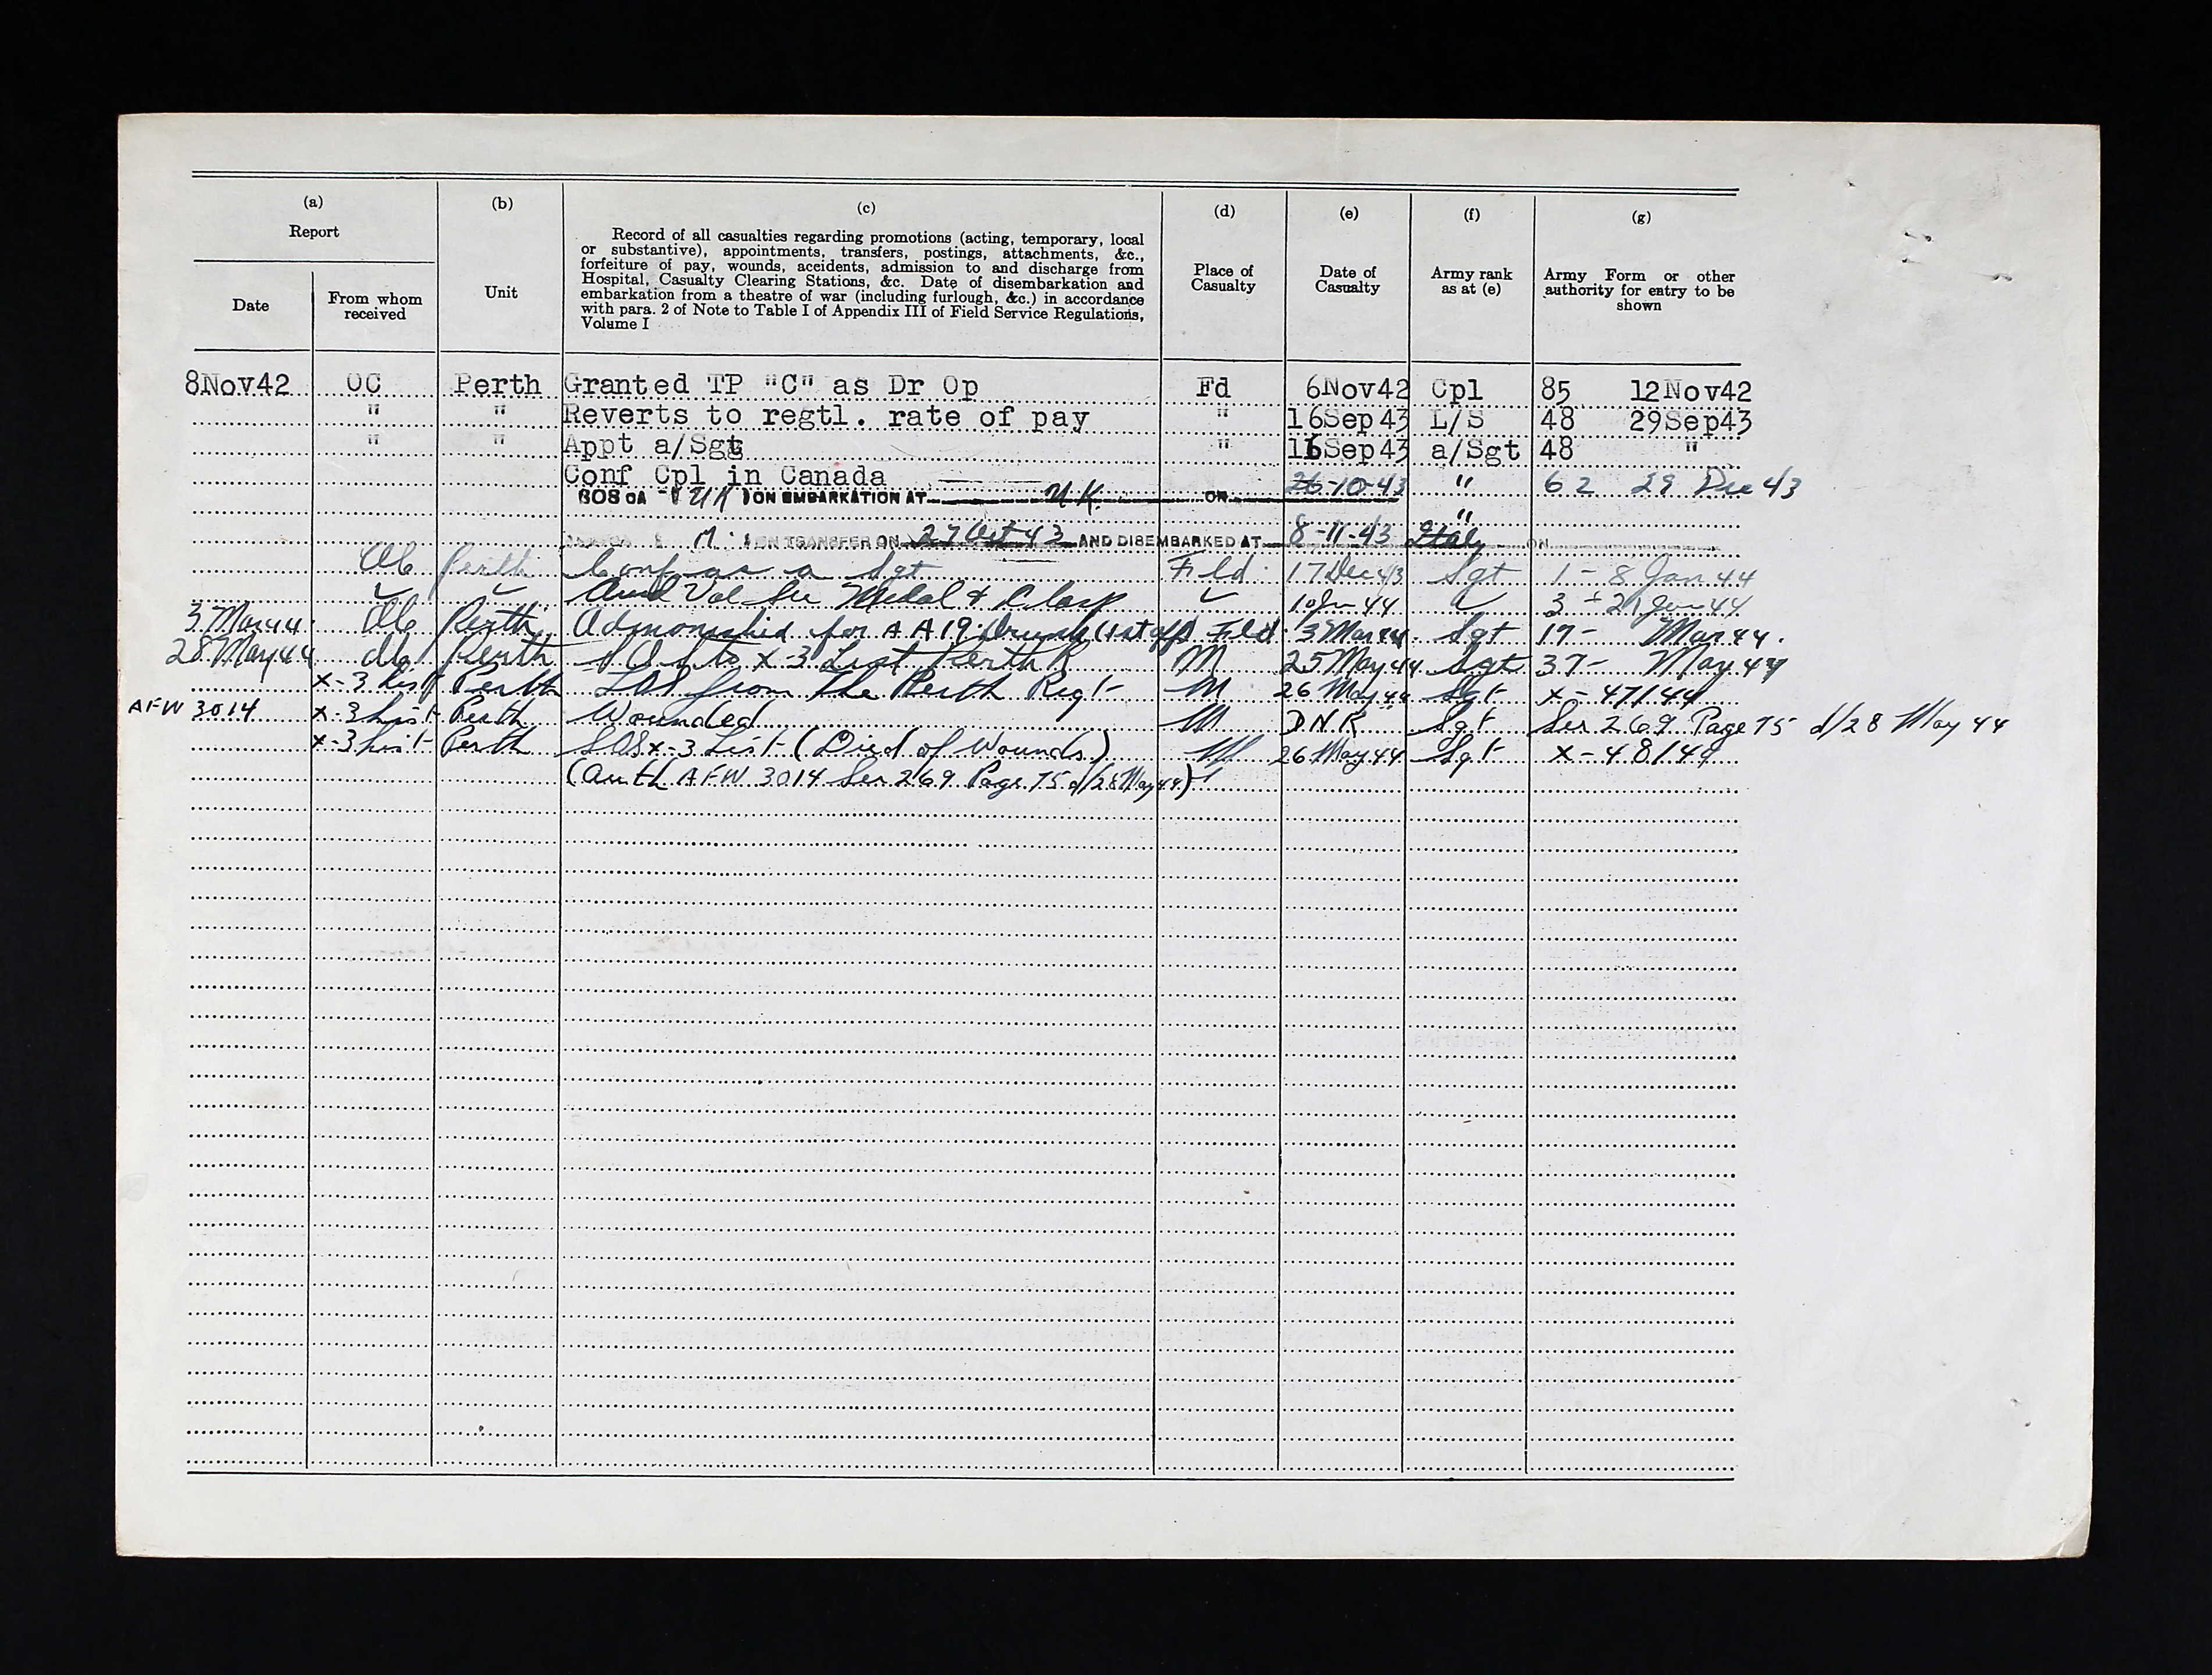 (a) (b) (c) (d) (e) (f) (g)
Report
Record of all casualties regarding promotions (acting, temporary, local
or substantive), appointments, transfers, postings, attachments, &c.,
forfeiture of pay, wounds, accidents, admission to and discharge from
Hospital, Casualty Clearing Stations, &c. Date of disembarkation and
embarkation from a theatre of war (including furlough, &c.) in accordance
with para. 2 of Note to Table I of Appendix III of Field Service Regulations,
Volume I
Date
From whom
received
Unit
Place of
Casualty
Date of
Casualty
Army rank
as at (e)
Army Form or other
authority for entry to be
shown
8Nov42 OC Perth Granted TP "C" as Dr Op Fd 6Nov42 Cpl 85 12Nov42
" " Reverts to regtl. rate of pay " 16Sep43 L/S 48 29Sep43
" " Appt a/Sgt " 16Sep43 a/Sgt 48 "
Conf Cpl in Canada
SOS CA UK ON EMBARKATION AT U.K. ON 26-10-43 " 62 29 Dec 43
ON TRANSFER ON 27 Oct 43 AND DISEMBARKED AT 8-11-43 Italy ON "
OC Perth Conf as a Sgt Fld 17 Dec 43 Sgt 1 - 8 Jan 44
Medal & Clasp 10 Jan 44 3 - 21 Jan 44
3 Mar 44 OC Perth Admonished for AA 19 Drunk (1st off) Fld 3 Mar 44 Sgt 17 - Mar 44.
28 May 44 OC Perth SOS to X-3 List Perth R M 25 May 44 Sgt 37 - May 44
X-3 List Perth TOS from The Perth Regt M 26 May 44 Sgt X-47/44
AFW 3014 X-3 List Perth Wounded M DNR Sgt Ser 269 Page 75 d/28 May 44
X-3 List Perth SOS X-3 List (Died of Wounds) M 26 May 44 Sgt X-48/44
(Auth AFW 3014 Ser 269 Page 75 d/28 May 44)